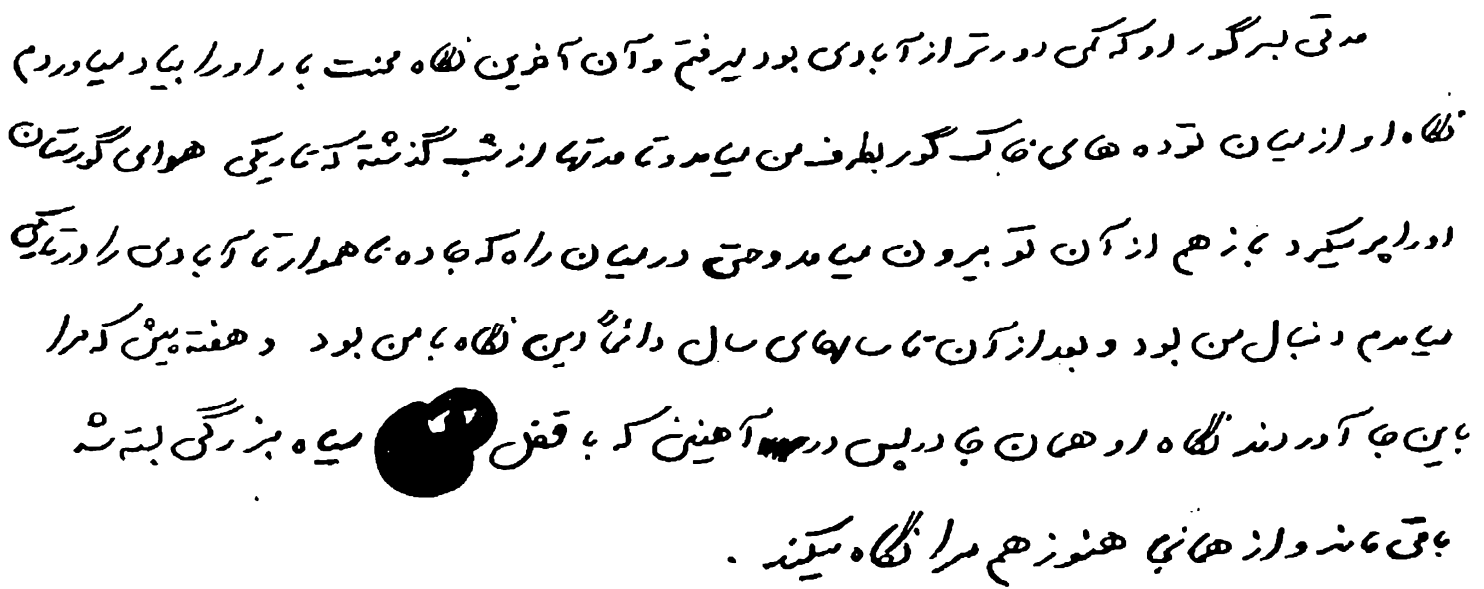 مدتی بسر گور او که کمی دورتر از آبادی بود میرفتم و آن آخرین نگاه محنت بار او را بیاد میاوردم
نگاه او از میان توده های خاک گور بطرف من میامد و تا مدتها از شب گذشته که تاریکی هوای گورستان
او را پر میکرد باز هم از آن تو بیرون میامد و حتی در میان راه که جاده ناهموار تا آبادی را در تاریکی
میامدم دنبال من بود و بعد از آن تا سالهای سال دائماً این نگاه با من بود و هفته پیش که مرا
باین جا آوردند نگاه او همان جا در پس در آهنینی که با قفل سیاه بزرگی بسته شد
باقی ماند و از همانجا هنوز هم مرا نگاه میکند .